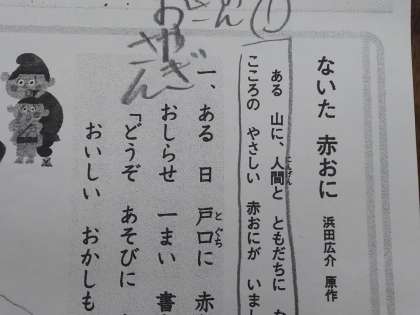 ①
おやぎさん
ないた 赤おに 浜田広介 原作
ある 山に、人間と ともだちに
こころの やさしい 赤おにが いまし
一、ある 日 戸口に 赤
おしらせ 一まい 書
「どうぞ あそびに
おいしい おかしも